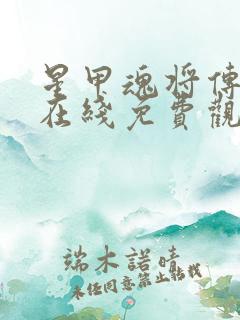 星甲魂将傳
在綫免費觀
端木諾晴
未经同意禁止转载